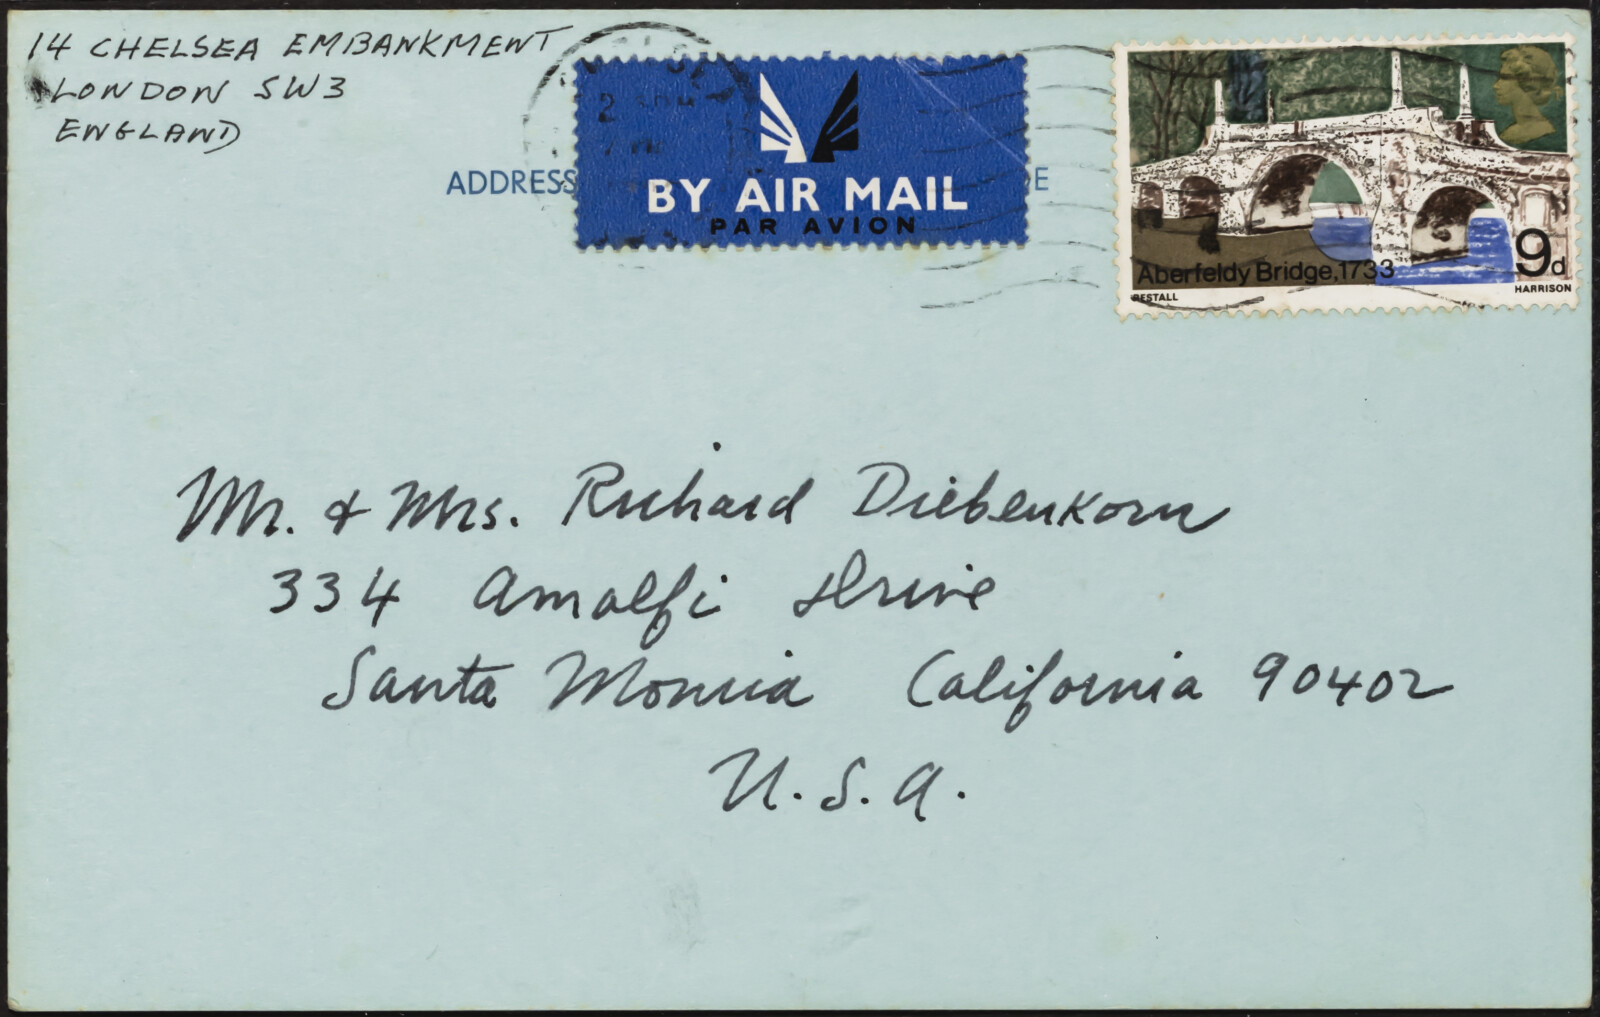 14 CHELSEA EMBANKMENT
LONDON SW3
ENGLAND
ADDRESS
BY AIR MAIL
PAR AVION
Aberfeldy Bridge, 1733
9d
RESTALL
HARRISON
Mr. & Mrs. Richard Diebenkorn
334 Amalfi Drive
Santa Monica California 90402
U.S.A.